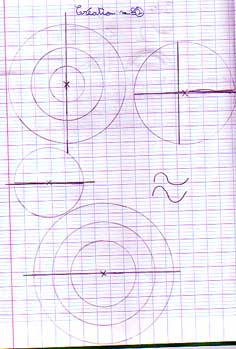 Création n°2